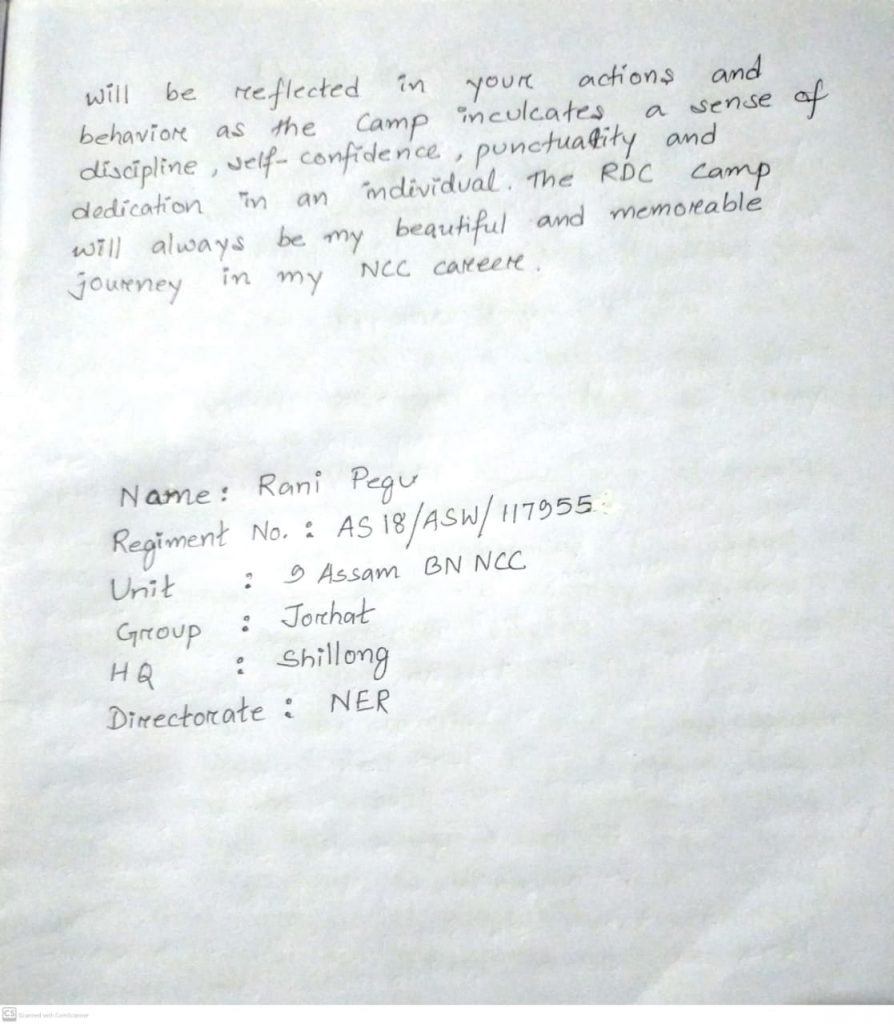 will be reflected in your actions and
behavior as the camp inculcates a sense of
discipline, self-confidence, punctuality and
dedication in an individual. The RDC camp
will always be my beautiful and memorable
journey in my NCC career.
Name: Rani Pegu
Regiment No. : AS18/ASW/117955
Unit : 9 Assam BN NCC
Group : Jorhat
HQ : Shillong
Directorate : NER
CS Scanned with CamScanner